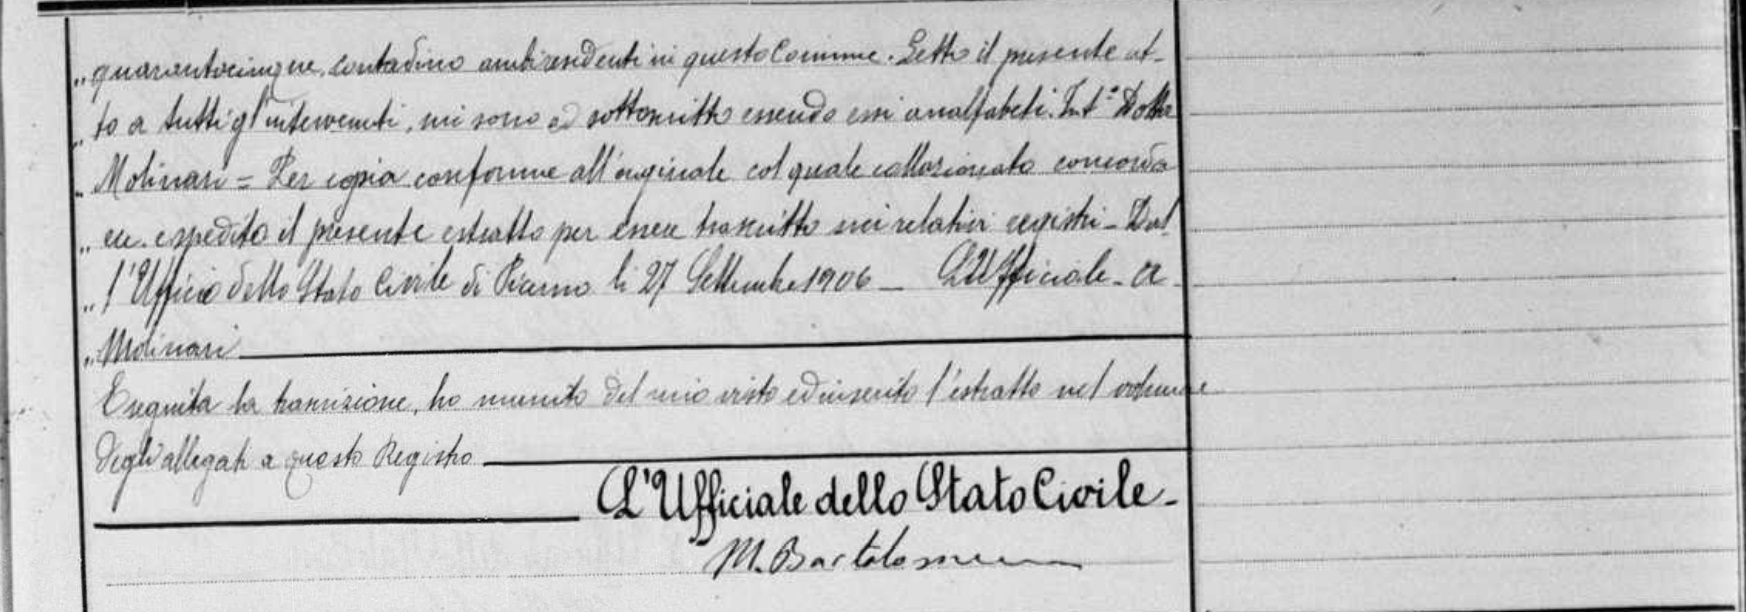 „ quarantacinque, contadino ambi residenti in questo Comune. Letto il presente at-
„ to a tutti gl'intervenuti, mi sono io sottoscritto essendo essi analfabeti. Dottor
„ Molinari = Per copia conforme all'originale col quale collazionato concorda
„ espedito il presente estratto per essere trascritto nei relativi registri - Dal
„ l'Ufficio dello Stato Civile di li 27 Settembre 1906 - L'Ufficiale - A
„ Molinari
Eseguita la trascrizione, ho munito del mio visto ed inserito l'estratto nel volume
degli allegati a questo Registro
L'Ufficiale dello Stato Civile -
M.